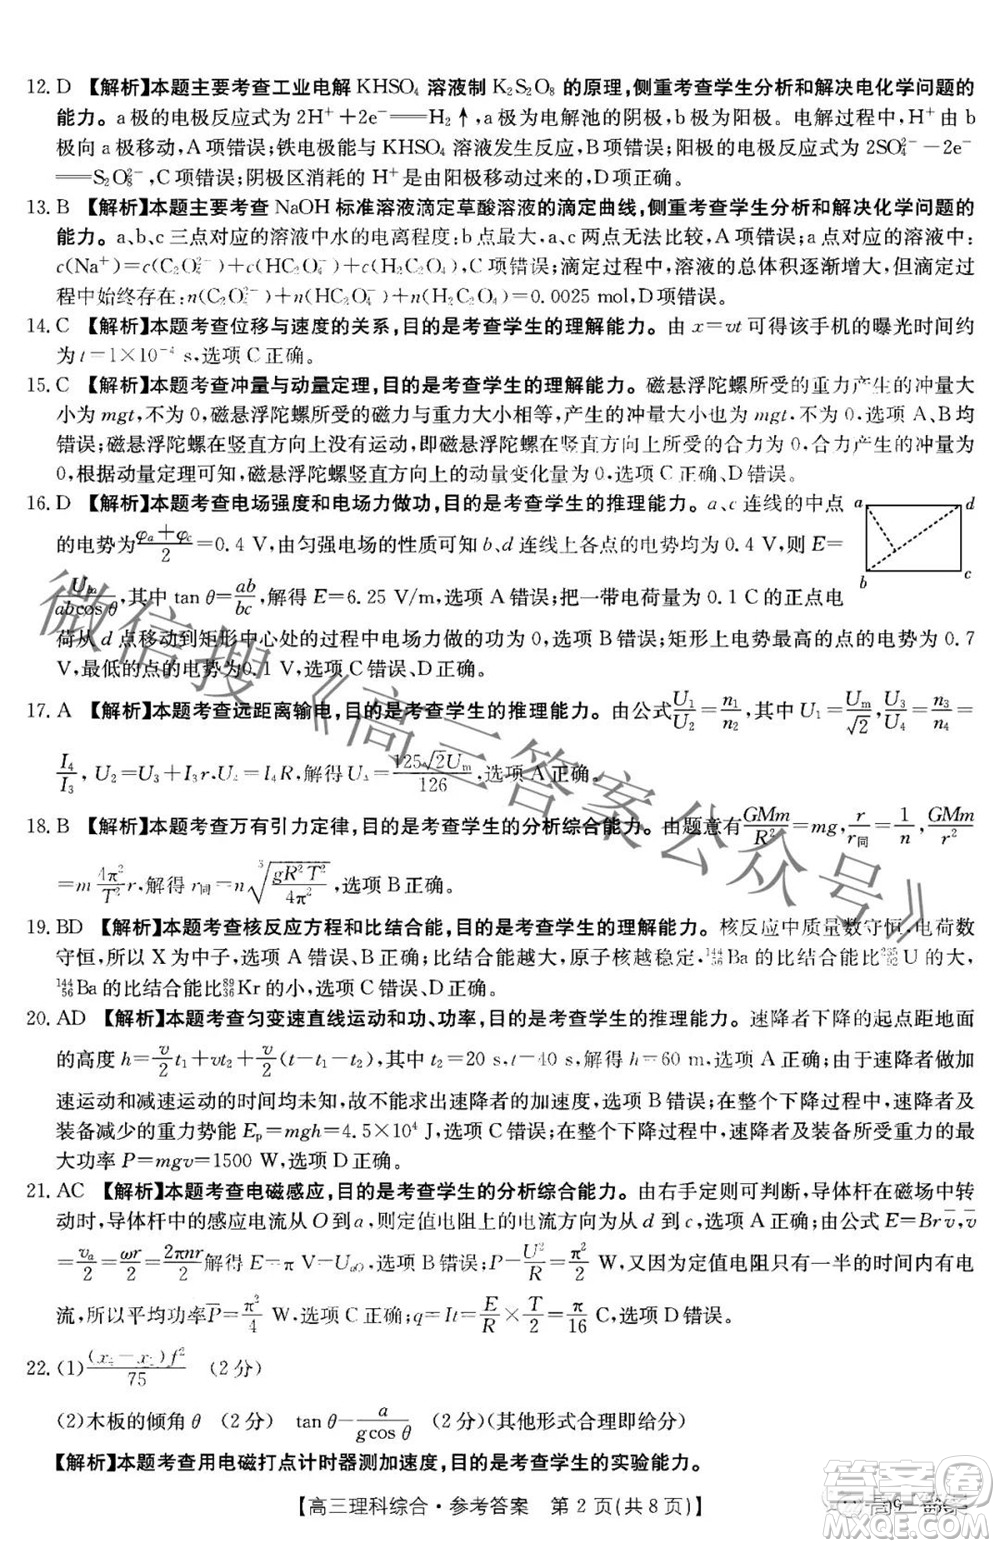 12. D 【解析】本题主要考查工业电解 KHSO₄ 溶液制 K₂S₂O₈ 的原理,侧重考查学生分析和解决电化学问题的
能力。a极的电极反应式为 2H⁺+2e⁻══H₂↑,a极为电解池的阴极,b极为阳极。电解过程中,H⁺由 b
极向 a 极移动,A 项错误;铁电极能与 KHSO₄ 溶液发生反应,B 项错误;阳极的电极反应式为 2SO₄²⁻−2e⁻
══S₂O₈²⁻,C 项错误;阴极区消耗的 H⁺由阳极移动过来的,D 项正确。
13. B 【解析】本题主要考查 NaOH 标准溶液滴定草酸溶液的滴定曲线,侧重考查学生分析和解决化学问题的
能力。a、b、c 三点对应的溶液中水的电离程度:b 点最大,a、c 两点无法比较,A 项错误;a 点对应的溶液中:
c(Na⁺)=c(C₂O₄²⁻)+c(HC₂O₄⁻)+c(H₂C₂O₄),C 项错误;滴定过程中,溶液的总体积逐渐增大,但滴定过
程中始终存在:n(C₂O₄²⁻)+n(HC₂O₄⁻)+n(H₂C₂O₄)=0.0025 mol,D 项错误。
14. C 【解析】本题考查位移与速度的关系,目的是考查学生的理解能力。由 x=vt 可得该手机的曝光时间约
为 t=1×10⁻⁴ s,选项 C 正确。
15. C 【解析】本题考查冲量与动量定理,目的是考查学生的理解能力。磁悬浮陀螺所受的重力产生的冲量大
小为 mgt,不为 0,磁悬浮陀螺所受的磁力与重力大小相等,产生的冲量大小也为 mgt,不为 0,选项 A、B 均
错误;磁悬浮陀螺在竖直方向上没有运动,即磁悬浮陀螺在竖直方向上所受的合力为 0,合力产生的冲量为
0,根据动量定理可知,磁悬浮陀螺竖直方向上的动量变化量为 0,选项 C 正确、D 错误。
16. D 【解析】本题考查电场强度和电场力做功,目的是考查学生的推理能力。a、c 连线的中点
的电势为 (φₐ+φ_c)/2=0.4 V,由匀强电场的性质可知 b、d 连线上各点的电势均为 0.4 V,则 E=
U_ba/(ab cos θ),其中 tan θ=ab/bc,解得 E=6.25 V/m,选项 A、B 错误;把一带电荷量为 0.1 C 的正点电
荷从 d 点移动到矩形中心处的过程中电场力做的功为 0,选项 B 错误;矩形上电势最高的点的电势为 0.7
V,电势最低的点的电势为 0.1 V,选项 C 错误、D 正确。
a
d
b
c
17. A 【解析】本题考查远距离输电,目的是考查学生的推理能力。由公式 U₁/U₂=n₁/n₂,其中 U₁=Uₘ/√2,U₃/U₄=n₃/n₄=
I₄/I₃,U₂=U₃+I₃r,U₄=I₄R,解得 U₂=125√2Uₘ/126,选项 A 正确。
18. B 【解析】本题考查万有引力定律,目的是考查学生的分析综合能力。由题意有 GMm/R²=mg,r/r同=1/n,GMm/r²
=m(4π²/T²)r,解得 r同=n∛(gR²T²/4π²),选项 B 正确。
19. BD 【解析】本题考查核反应方程和比结合能,目的是考查学生的理解能力。核反应中质量数守恒,电荷数
守恒,所以 X 为中子,选项 A 错误、B 正确;比结合能越大,原子核越稳定,¹⁴⁴₅₆Ba 的比结合能比 ²³⁵₉₂U 的大,
¹⁴⁴₅₆Ba 的比结合能比 ⁸⁹₃₆Kr 的小,选项 C 错误、D 正确。
20. AD 【解析】本题考查匀变速直线运动和功、功率,目的是考查学生的推理能力。速降者下降的起点距地面
的高度 h=(v/2)t₁+vt₂+(v/2)(t−t₁−t₂),其中 t₂=20 s,t=40 s,解得 h=60 m,选项 A 正确;由于速降者做加
速运动和减速运动的时间未知,故不能求出速降者的加速度,选项 B 错误;在整个下降过程中,速降者及
装备减少的重力势能 Eₚ=mgh=4.5×10⁴ J,选项 C 错误;在整个下降过程中,速降者及装备所受重力的最
大功率 P=mgv=1500 W,选项 D 正确。
21. AC 【解析】本题考查电磁感应,目的是考查学生的分析综合能力。由右手定则可判断,导体杆在磁场中转
动时,导体杆中的感应电流从 O 到 a,则定值电阻上的电流方向为从 d 到 c,选项 A 正确;由公式 E=Brv̄,v̄
=vₐ/2=ωr/2=2πnr/2,解得 E=π V=U_aO,选项 B 错误;P=U²/R=π²/2 W,因为定值电阻只有一半的时间内有电
流,所以平均功率 P̄=π²/4 W,选项 C 正确;q=It=E/R×T/2=π/16 C,选项 D 错误。
22. (1) (x₄−x₁)f²/75 (2 分)
(2)木板的倾角 θ (2 分) tan θ−a/(g cos θ) (2 分)(其他形式合理即给分)
【解析】本题考查用电磁打点计时器测加速度,目的是考查学生的实验能力。
【高三理科综合·参考答案 第 2 页(共 8 页)】
微信搜《高三答案公众号》